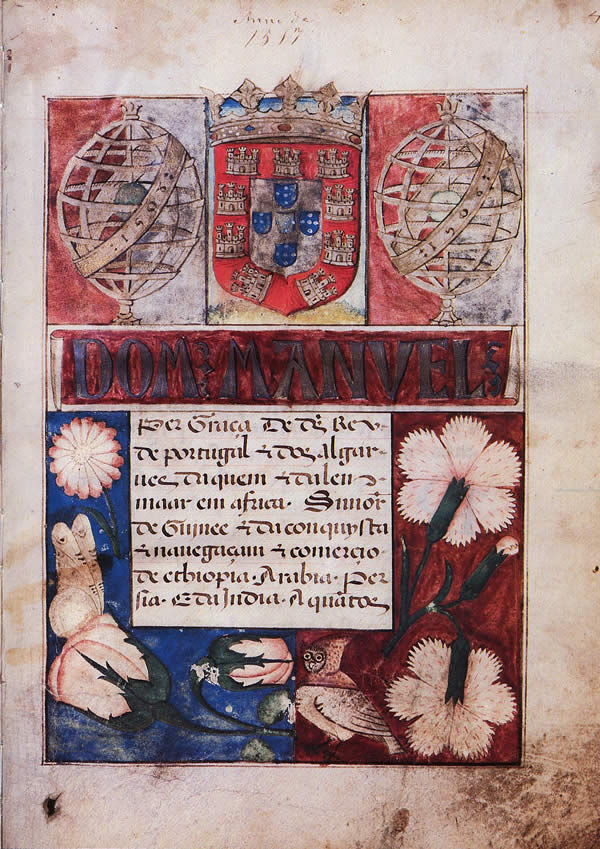 Anno de
1517
DOM MANVEL
Per Graça De ds Rey
de portugal & dos algar
ues daquem & dalem
maar em africa. Snnor
de Guinee & da conquysta
& nauegacam & comercio
de ethiopia. Arabia. Per
sia. E da India. A quãtos